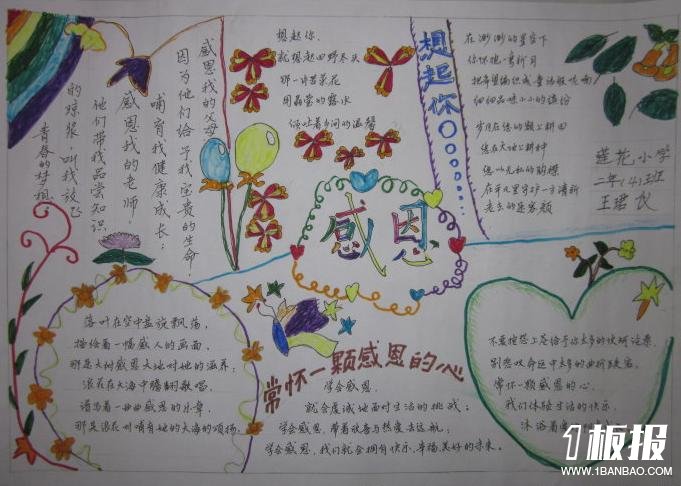 感恩我的父母
因为他们给予我宝贵的生命！
哺育我健康成长；
感恩我的老师！
他们带我品尝知识
的琼浆，叫我放飞
青春的梦想。
想起你、
就想起田野尽头
那一片苦菜花
用晶莹的露水
倾吐着
的温馨
想起你○○○……
在渺渺的星空下
你怀抱一弯新月
把希望编织成童话般
细细品味
岁月在您的额上耕田
您在大地上耕种
您以无私的胸襟
在平凡里守护一方清新
老去的是容颜
莲花小学
二年(4)班
王珺
感恩
落叶在空中盘旋飘荡，
描绘着一幅感人的画面，
那是大树感恩大地对她的滋养；
浪花在大海中翻歌唱，
谱写着一曲曲感恩的乐章，
那是浪花对哺育她的大海的颂扬。
常怀一颗感恩的心
学会感恩，
就会虔诚地面对生活的挑战；
学会感恩，带着执着与热爱去远航；
学会感恩，我们就会拥有快乐、幸福、美好的未来。
不要埋怨上苍给予你太多的
别悲叹命运中太多的曲折跌宕。
常怀一颗感恩的心，
我们体验生活的快乐，
沐浴着
1板报
WWW.1BANBAO.COM